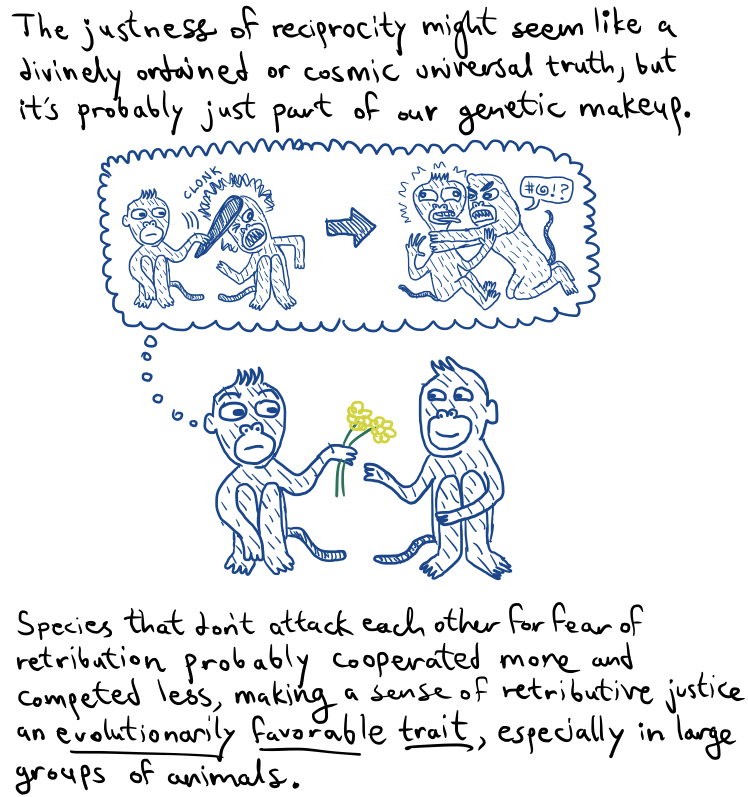 The justness of reciprocity might seem like a
divinely ordained or cosmic universal truth, but
it's probably just part of our genetic makeup.
CLONK
#@!?
Species that don't attack each other for fear of
retribution probably cooperated more and
competed less, making a sense of retributive justice
an evolutionarily favorable trait, especially in large
groups of animals.